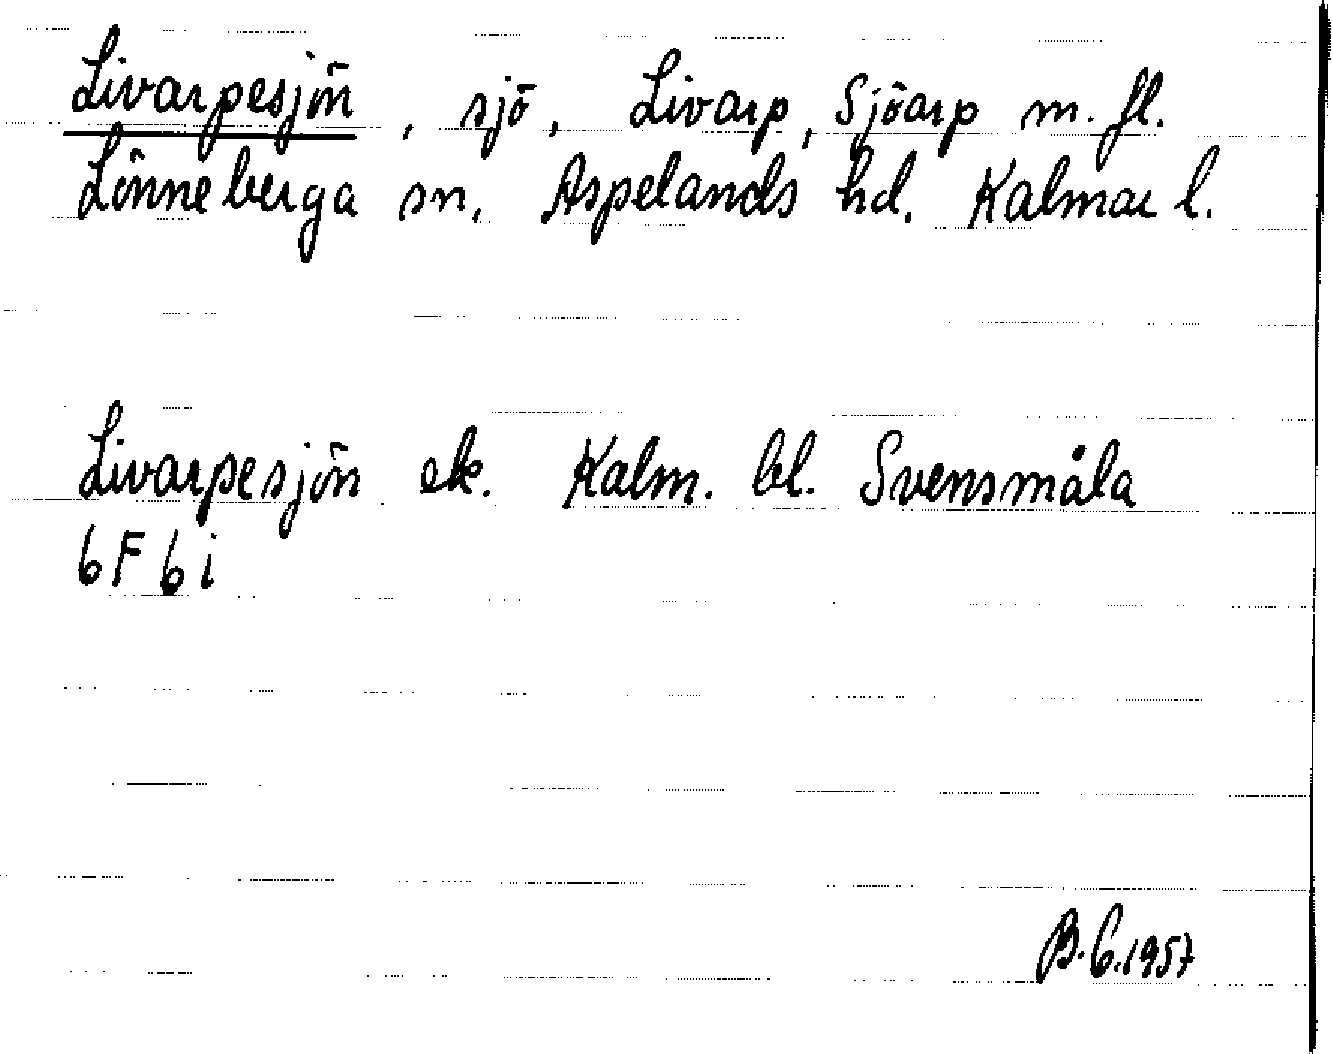 Livarpesjön, sjö, Livarp, Sjöarp m. fl.
Lönneberga sn, Aspelands hd. Kalmar l.
Livarpesjön ek. Kalm. bl. Svensmåla
6F 6i
B. G. 1957